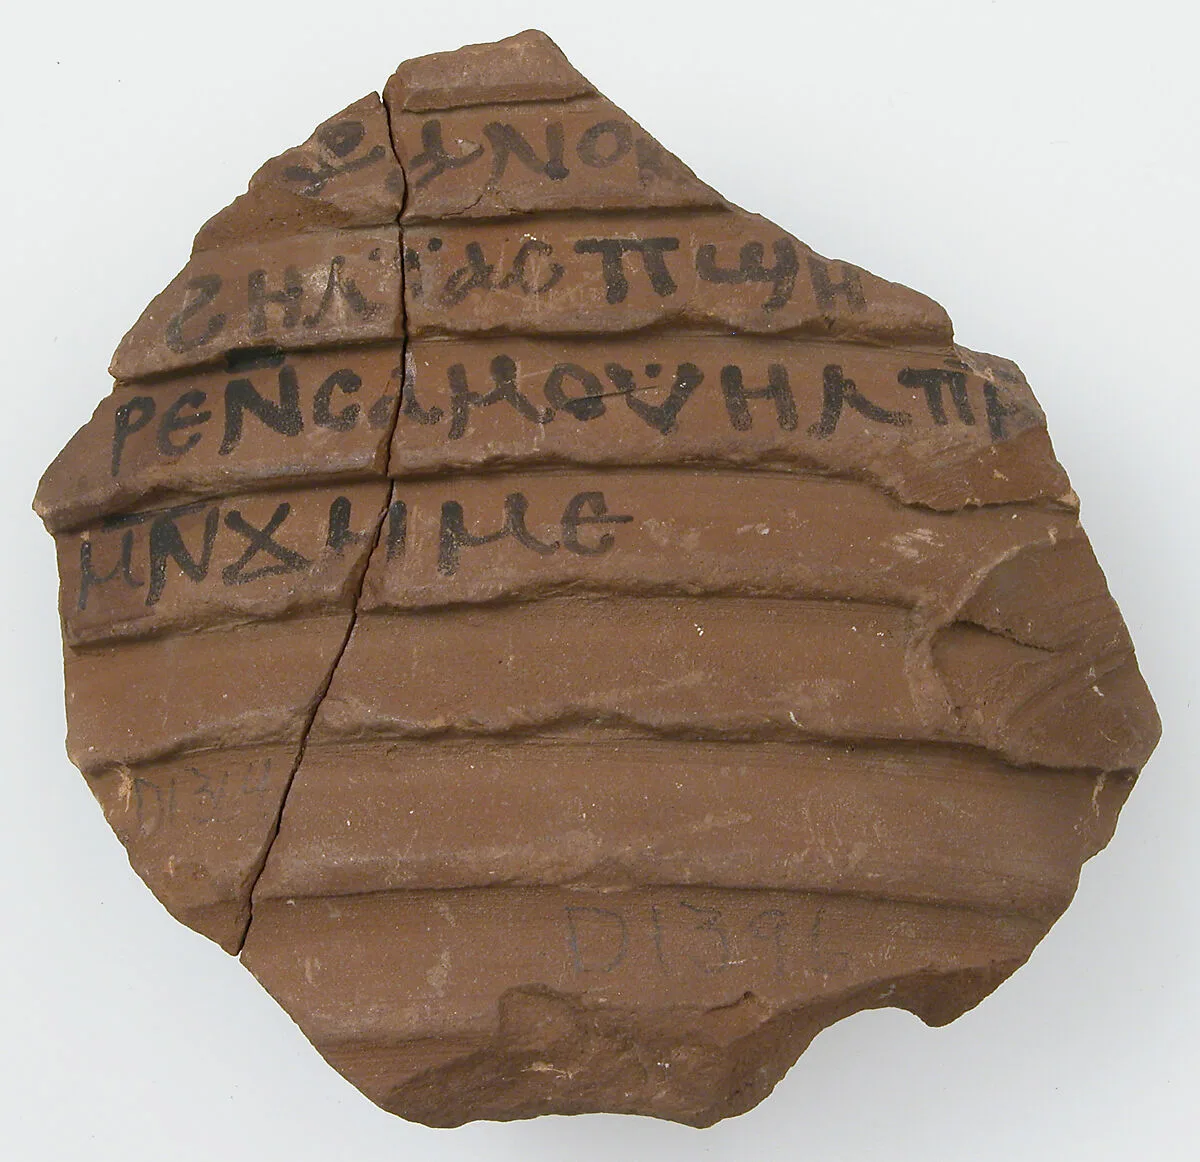 ϯ ⲁⲛⲟⲕ
ϩⲏⲗⲓⲁⲥ ⲡϣⲏ
ⲣⲉ ⲛⲥⲁⲙⲟⲩⲏⲗ ⲡⲣ
ⲙⲛϫⲏⲙⲉ
D1314
D139